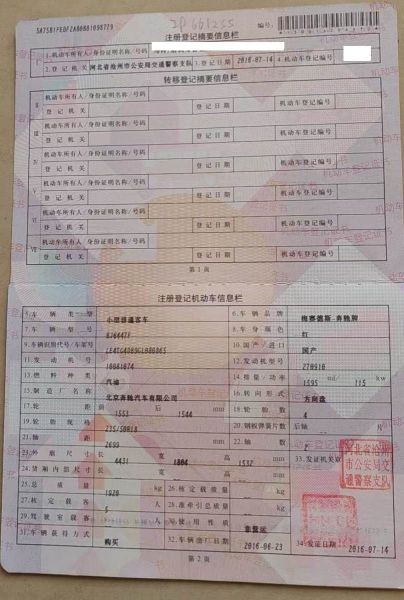 编号:
注册登记摘要信息栏
1.机动车所有人/身份证明名称/号码
2.登记机关 河北省沧州市公安局交通警察支队 3.登记日期 2016-07-14 4.机动车登记编号
转移登记摘要信息栏
机动车所有人/身份证明名称/号码
登记机关 登记日期 机动车登记编号
机动车所有人/身份证明名称/号码
登记机关 登记日期 机动车登记编号
机动车所有人/身份证明名称/号码
登记机关 登记日期 机动车登记编号
机动车所有人/身份证明名称/号码
登记机关 登记日期 机动车登记编号
机动车所有人/身份证明名称/号码
登记机关 登记日期 机动车登记编号
机动车所有人/身份证明名称/号码
登记机关 登记日期 机动车登记编号
第1页
注册登记机动车信息栏
5.车辆类型 小型普通客车 6.车辆品牌 梅赛德斯-奔驰牌
7.车辆型号 8.车身颜色 红
9.车辆识别代号/车架号 10.国产/进口 国产
11.发动机号 12.发动机型号 270910
13.燃料种类 汽油 14.排量/功率 1595 ml 115 kw
15.制造厂名称 北京奔驰汽车有限公司 16.转向形式 方向盘
17.轮距 前 1553 后 1544 mm 18.轮胎数 4
19.轮胎规格 235/50R18 20.钢板弹簧片数
21.轴距 2699 mm 22.轴数 2
23.外廓尺寸 长 4431 宽 1804 高 1532 mm
24.货厢内部尺寸 长 宽 高 mm
25.总质量 1920 kg 26.核定载质量 kg
27.核定载客 5 人 28.准牵引总质量 kg
29.驾驶室载客 人 30.使用性质 非营运
31.车辆获得方式 购买 32.车辆出厂日期 2016-06-23
33.发证机关章
河北省沧州市公安局交通警察支队
34.发证日期 2016-07-14
第2页